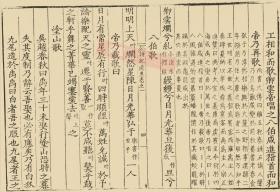 王相和而歌卿雲帝唱之八伯咸進稽首而和
帝乃再歌
卿雲爛兮縵縵兮日月光華旦復旦兮
八伯歌
明明上天爛然星陳日月光華弘于一人
帝乃載歌
日月有常星辰有行四時順經萬姓允誠於予
論樂配天之靈遷于賢善莫不咸聽鼚乎鼓
之軒乎舞之菁華已竭褰裳去之
塗山歌
吳越春秋曰禹年三十未娶行塗山恐時之暮
失其度制乃辭云吾娶也必有應矣乃有白狐
九尾造於禹禹曰白者吾之服也九尾者王之